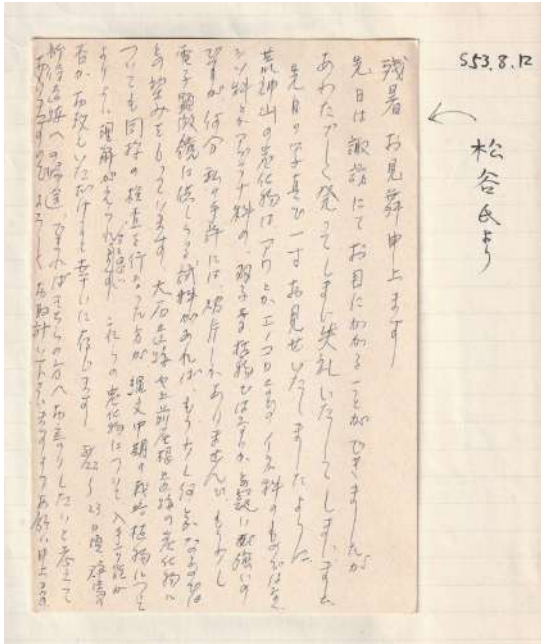 S53.8.12
松谷氏より
残暑お見舞申上ます
先日は諏訪にてお目にかかることができましたが
あわただしく発ってしまい失礼いたしてしまいました
先日の写真で一寸お見せいたしましたように
荒神山の炭化物はアワとかエノコログサのイネ科のものではなく
シソ科とか 科の 双子葉植物ではなかろうか
が何分私の手許には、破片しかありませんで、もう少し
電子顕微鏡に供しうる試料があれば、もう少し何か
の望みをもっています 大石遺跡や上前尾根遺跡の炭化物に
ついても同様の検査を行なった方が縄文中期の 植物について
よりよい理解がえられると これらの炭化物について入手可能か
否か お教えいただけますと幸いに存じます 22〜23日
遺跡への帰途、 そちらの方へお寄りしたいと考えて
おりますので よろしくお取計い下さいますようお願い申上ます